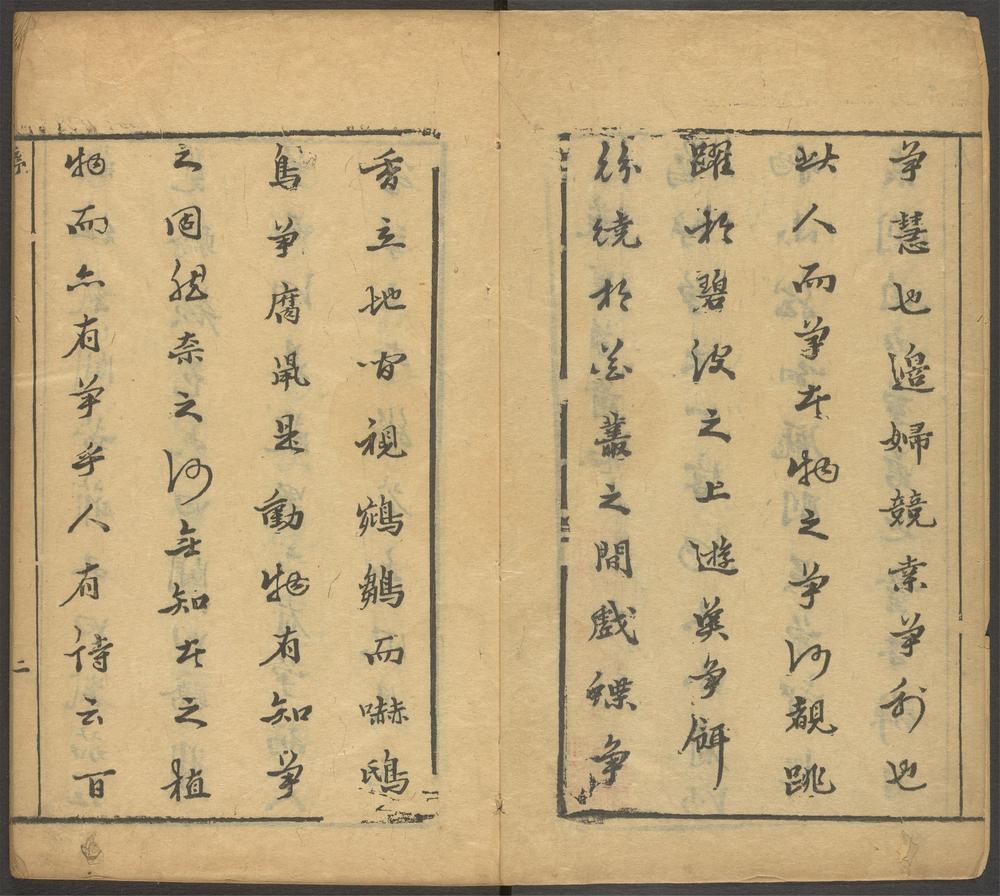 爭慧也邉婦競索爭利也
此人而爭在物之爭何覩跳
躍於碧波之上遊魚爭餌
紛繞於花叢之間戲蝶爭
香立地昂視鵷鶵而嚇鴟
鳥爭腐鼠是動物有知爭
之固然奈之何無知在之植
物而亦有爭乎人有詩云百
序
二